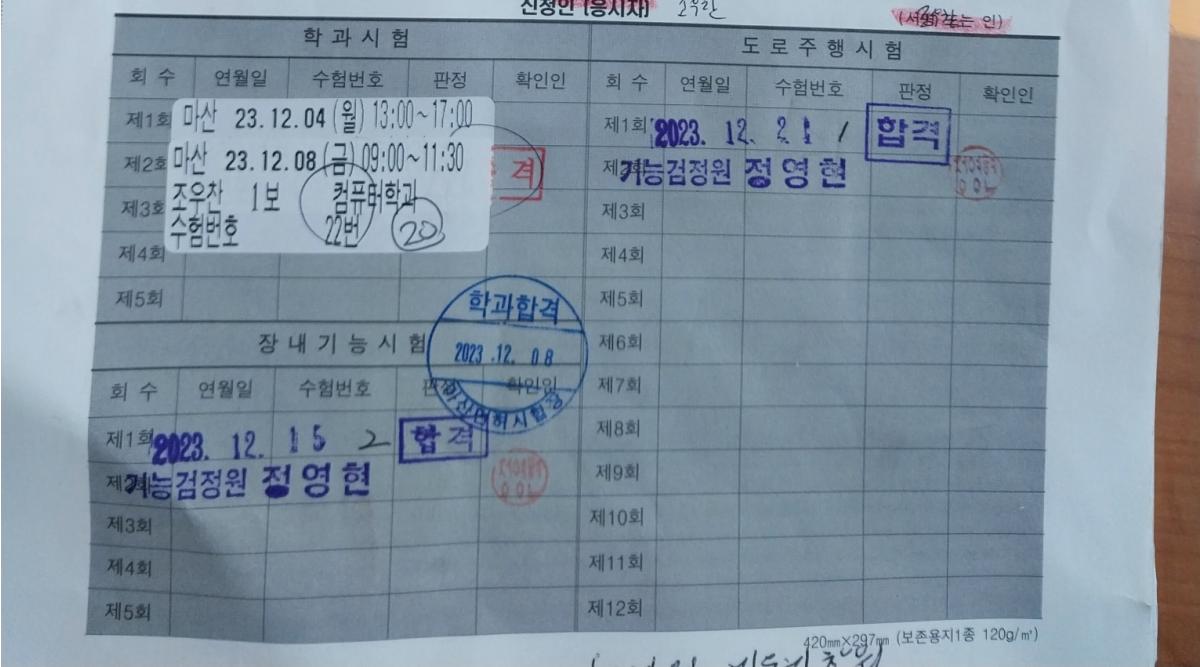 신청인 (응시자) 조우찬
(서명 또는 인)
학과시험
회 수 연월일 수험번호 판정 확인인
제1회
제2회
제3회
제4회
제5회
마산 23.12.04 (월) 13:00~17:00
마산 23.12.08 (금) 09:00~11:30
조우찬 1보 컴퓨터학과
수험번호 22번 20
격
학과합격
2023.12.08
마산면허시험장
장내기능시험
회 수 연월일 수험번호 판정 확인인
제1회 2023. 12. 15 2 합격
기능검정원 정영현
제3회
제4회
제5회
도로주행시험
회 수 연월일 수험번호 판정 확인인
제1회 2023. 12. 21 1 합격
기능검정원 정영현
제3회
제4회
제5회
제6회
제7회
제8회
제9회
제10회
제11회
제12회
420mm×297mm (보존용지1종 120g/㎡)